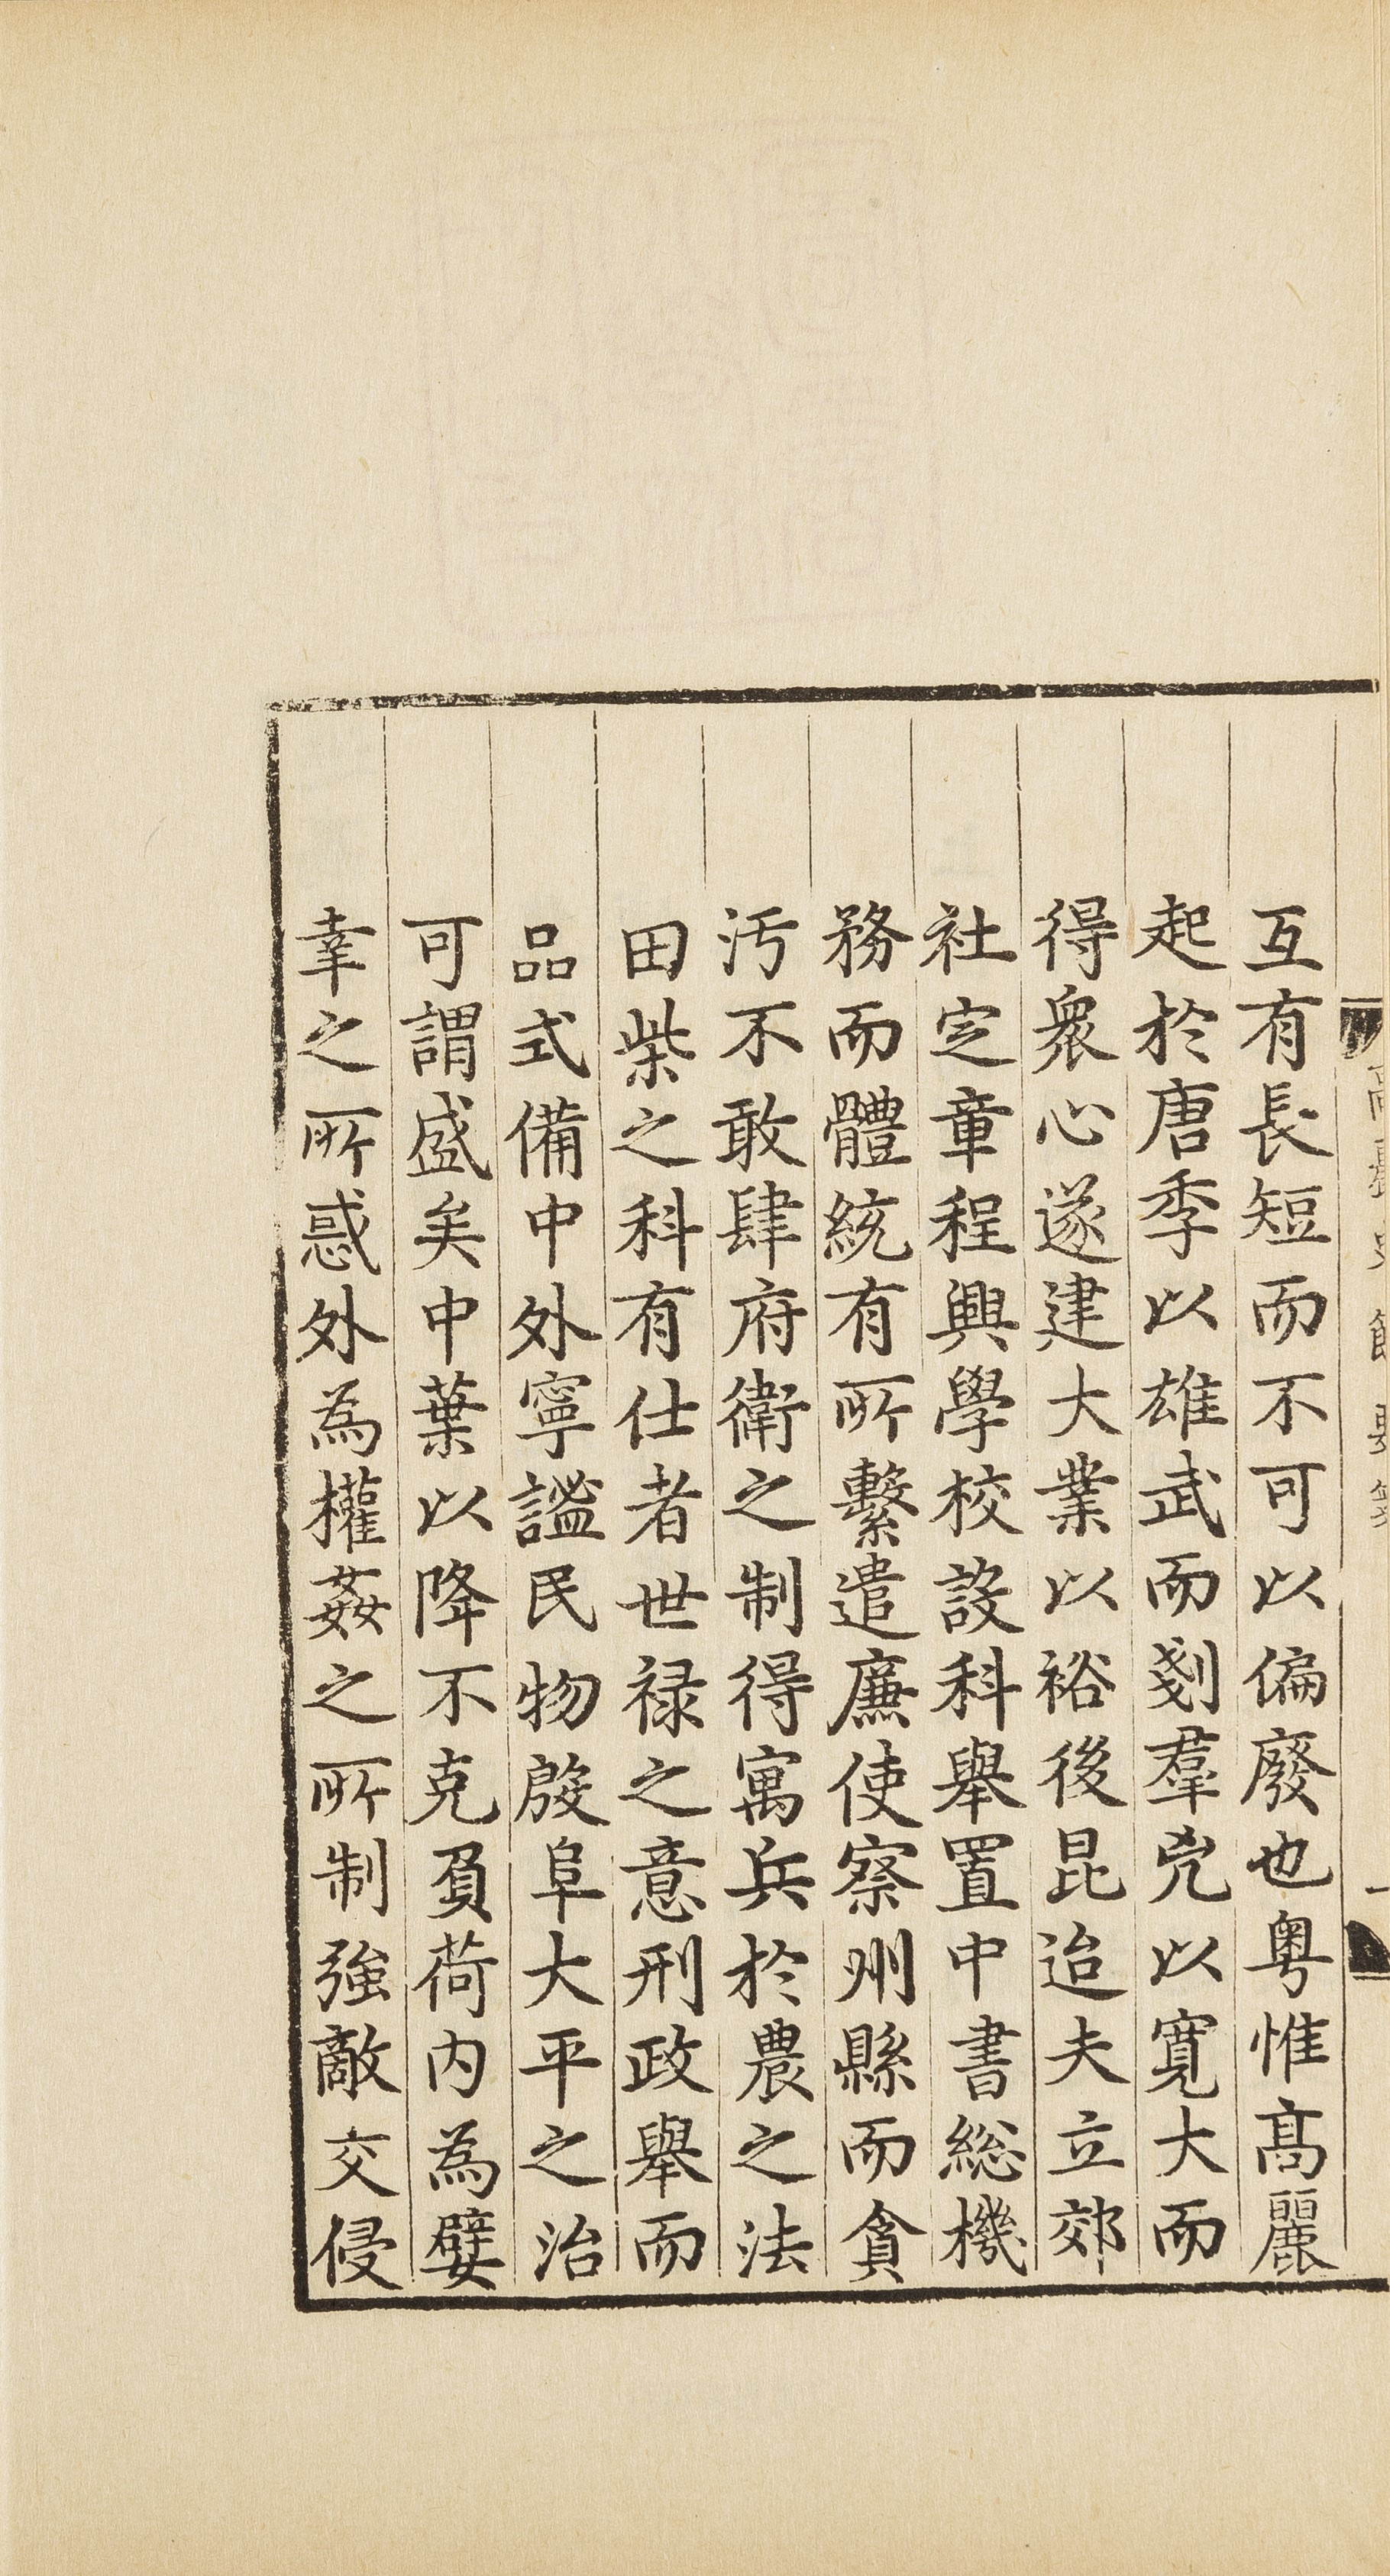 互有長短而不可以偏廢也粤惟髙麗
起於唐季以雄武而剗羣兇以寛大而
得衆心遂建大業以裕後昆迨夫立郊
社定章程興學校設科舉置中書総機
務而體統有所繫遣廉使察州縣而貪
汚不敢肆府衛之制得寓兵於農之法
田柴之科有仕者世禄之意刑政舉而
品式備中外寧謐民物殷阜大平之治
可謂盛矣中葉以降不克負荷内為嬖
幸之所惑外為權姦之所制強敵交侵